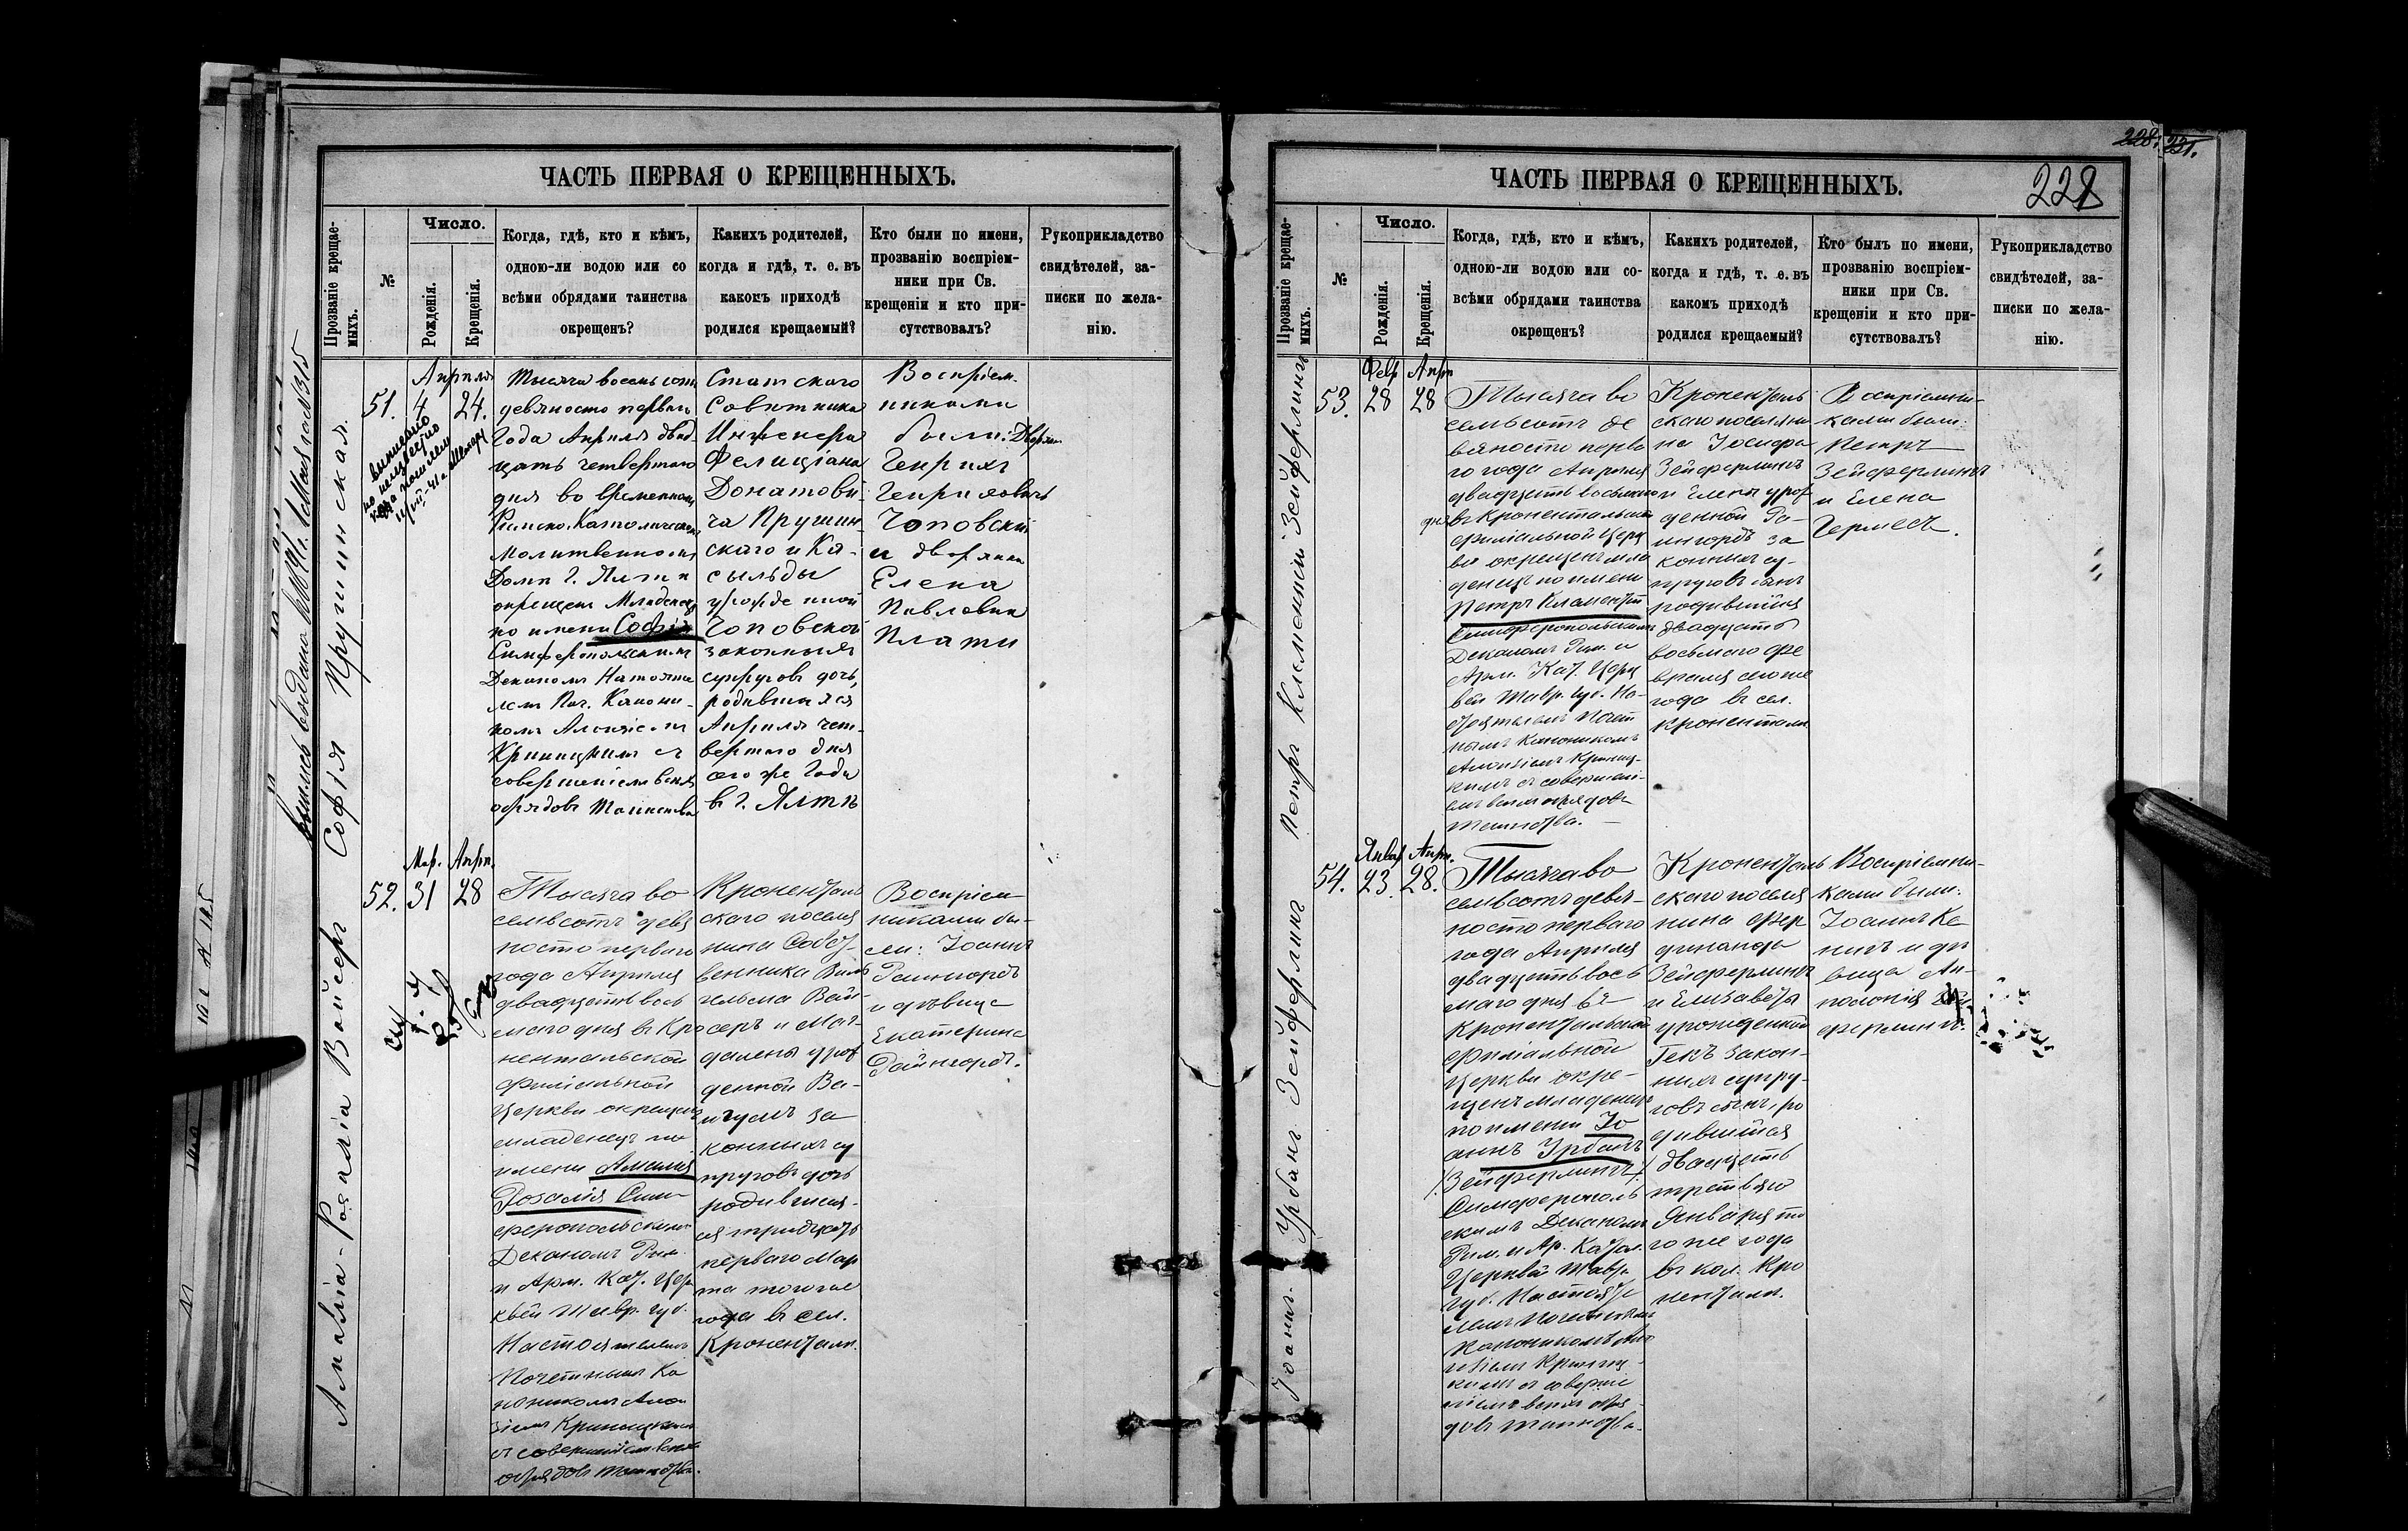 ЧАСТЬ ПЕРВАЯ О КРЕЩЕННЫХЪ.
Прозваніе крещае-
мыхъ.
№
Число.
Рожденія.
Крещенія.
Когда, гдѣ, кто и кѣмъ,
одною-ли водою или со
всѣми обрядами таинства
окрещенъ?
Какихъ родителей,
когда и гдѣ, т. е. въ
какомъ приходѣ
родился крещаемый?
Кто были по имени,
прозванію воспріем-
ники при Св.
крещеніи и кто при-
сутствовалъ?
Рукоприкладство
свидѣтелей, за-
писки по жела-
нію.
Софія Прушинская.
51.
Апрѣля
4
24.
Тысяча восемьсотъ
девяносто перваго
Года Апрѣля двад-
цать четвертаго
дня во временномъ
Римско-Католическомъ
Молитвенномъ
Домѣ г. Ялты
окрещенъ Младенецъ
по имени Софія
Симферопольскимъ
Деканомъ Настояте
лемъ Поч. Канони-
комъ Алоизіемъ
Криницкимъ съ
совершеніемъ всѣхъ
обрядовъ Таинства
Статскаго
Совѣтника
Инженера
Фелиціана
Донатови-
ча Прушин-
скаго и Ка-
сыльды
урожденной
Чоповской
законныхъ
супруговъ дочь,
родившаяся
Апрѣля чет-
вертаго дня
сего же Года
въ г. Ялтѣ
Воспріем-
никами
были: Дворян
Генрихъ
Генриховичъ
Чоповскій
и дворянка
Елена
Павловна
Плати
Амалія-Розалія Вайсеръ
52.
Мар.
31
Апрѣ.
28
Тысяча во
семьсотъ девя
носто перваго
года Апрѣля
двадцать вось
маго дня въ Кро
нентальской
филіальной
Церкви окрещенъ
младенецъ по
имени Амалія
Розалія Сим-
феропольскимъ
Деканомъ Рим.
и Арм. Кат. Цер
квей Тавр. губ.
Настоятелемъ
Почетнымъ Ка
нониколъ Алои
зіемъ Криницкимъ
съ совершеніемъ всѣхъ
обрядовъ таинства.
Кроненталь
скаго поселя
нина Собст-
венника Виль
гельма Вай-
серъ и Маг-
далены урож
денной Ва-
игумъ за
конныхъ су
пруговъ дочь
родившая-
ся тридцать
перваго Мар
та того же
года въ сел.
Кроненталѣ.
Воспріем
никами бы-
ли: Іоаннъ
Раингордъ
и дѣвица
Екатерина
Раингордъ.
228
ЧАСТЬ ПЕРВАЯ О КРЕЩЕННЫХЪ.
Прозваніе крещае-
мыхъ.
№
Число.
Рожденія.
Крещенія.
Когда, гдѣ, кто и кѣмъ,
одною-ли водою или со-
всѣми обрядами таинства
окрещенъ?
Какихъ родителей,
когда и гдѣ, т. е. въ
какомъ приходѣ
родился крещаемый?
Кто былъ по имени,
прозванію воспріем-
ники при Св.
крещеніи и кто при-
сутствовалъ?
Рукоприкладство
свидѣтелей, за-
писки по жела-
нію.
Петръ Клементій Зейферлингъ
53.
Февр
28
Апрѣ
28
Тысяча во
семьсотъ де
вяносто перва
го года Апрѣля
двадцать восьмаго
дня въ Кронентальской
филіальной Церк
ви окрещенъ мла
денецъ по имени
Петръ Клементій
Симферопольскимъ
Деканомъ Рим. и
Арм. Кат. Церк
вей Тавр. губ. На-
стоятелемъ Почет
нымъ Каноникомъ
Алоизіемъ Криниц-
кимъ съ совершені-
емъ всѣхъ обрядовъ
таинства.
Кроненталь
скаго поселяни
на Іосифа
Зейферлингъ
и Елены урож
денной Ра-
ингордъ за
конныхъ су-
пруговъ сынъ
родившійся
двадцать
восьмаго фе
враля сего же
года въ сел.
Кроненталѣ
Воспріемни-
ками были:
Петръ
Зейферлингъ
и Елена
Гермесъ.
Іоаннъ. Урбанъ Зейферлингъ
54.
Январ
23
Апрѣ.
28.
Тысяча во
семьсотъ девя-
носто перваго
года Апрѣля
двадцать вось
маго дня въ
Кронентальской
филіальной
Церкви окре-
щенъ младенецъ
по имени Іо
аннъ Урбанъ
/Зейферлингъ/
Симферополь
скимъ Деканомъ
Рим. и Ар. Катол.
Церквей Тавр.
губ. Настояте
лемъ Почетнымъ
Каноникомъ Ало
изіемъ Криниц-
кимъ съ соверше
ніемъ всѣхъ обря-
довъ таинства.
Кроненталь
скаго поселя
нина Фер
динанда
Зейферлингъ
и Елизаветы
урожденной
Гекъ закон-
ныхъ супру-
говъ сынъ, ро
дившійся
двадцать
третьяго
Января то
го же года
въ кол. Кро
ненталѣ.
Воспріемни-
ками были:
Іоаннъ Ке
нигъ и дѣ
вица Ап-
полонія Зей
ферлингъ.